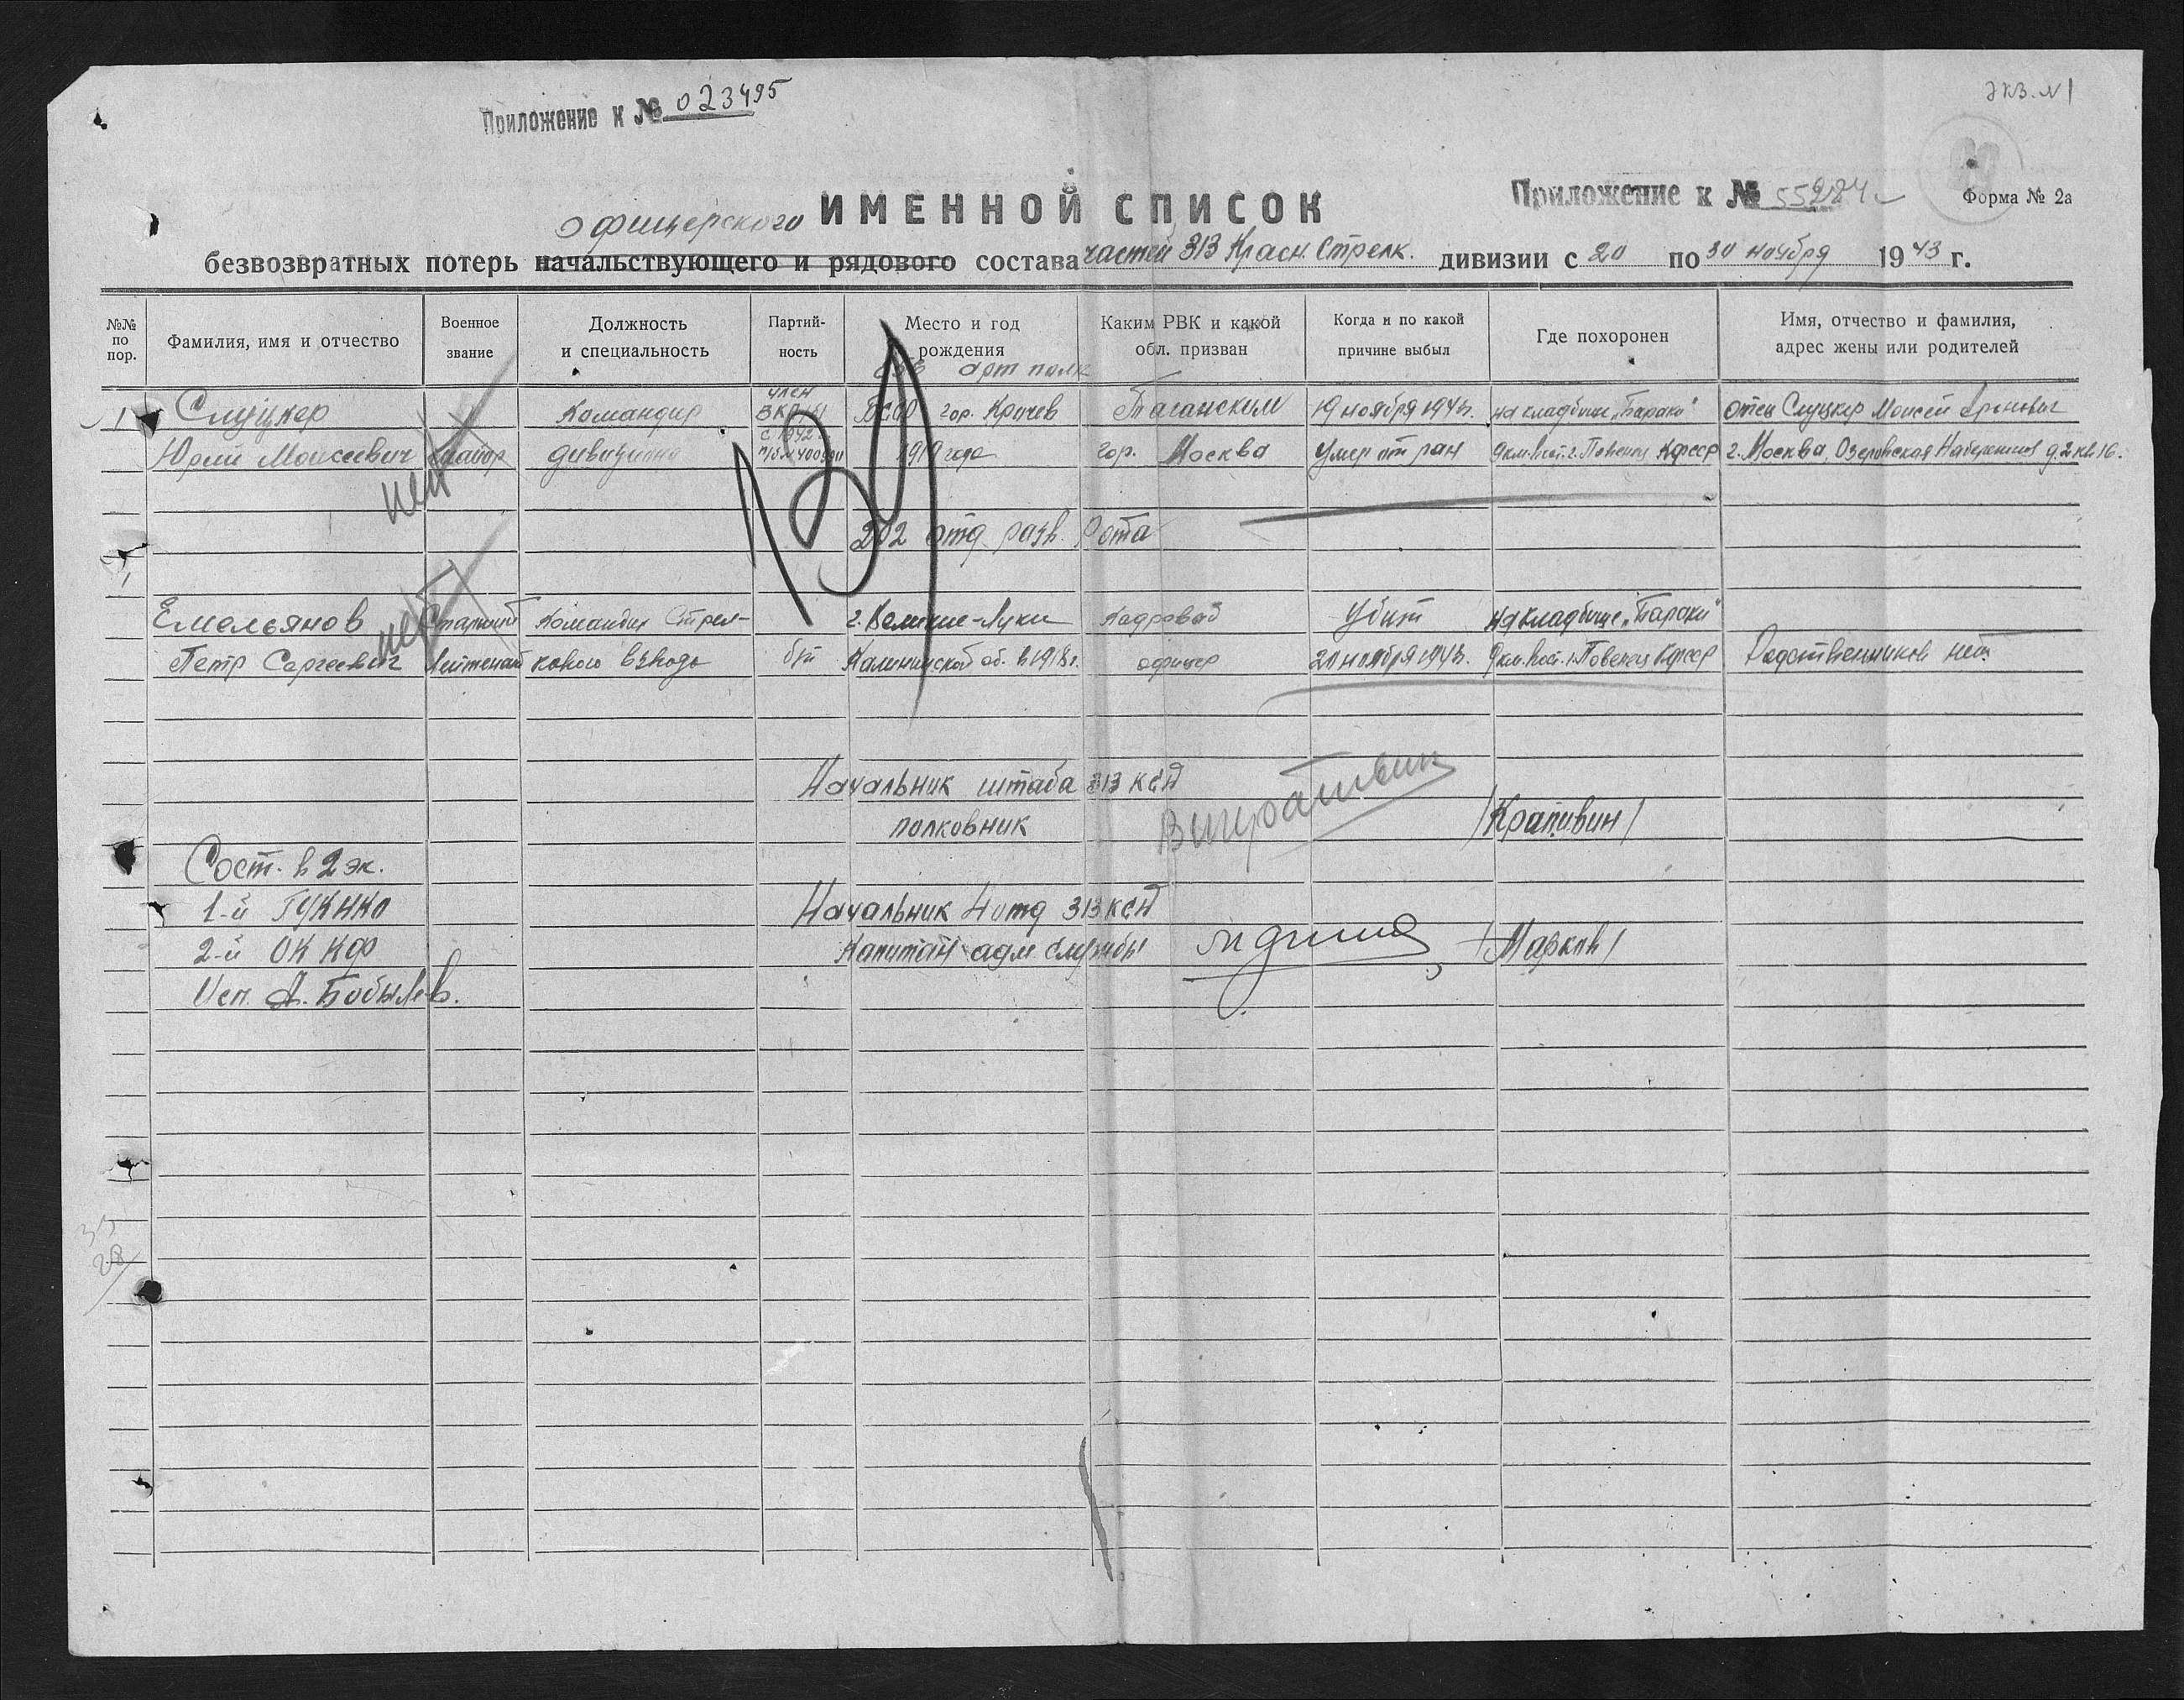 экз. № 1
Приложение к № 023495
Приложение к № 55224с
Форма № 2а
ИМЕННОЙ СПИСОК
офицерского
безвозвратных потерь начальствующего и рядового состава частей 313 Красн. Стрелк. дивизии с 20 по 30 ноября 1943 г.
№№ по пор. Фамилия, имя и отчество Военное звание Должность и специальность Партий-ность Место и год рождения Каким РВК и какой обл. призван Когда и по какой причине выбыл Где похоронен Имя, отчество и фамилия, адрес жены или родителей
арт полк
член
1 Слуцкер Командир ВКП(б) БССР гор. Кричев Таганским 19 ноября 1943г. на кладбище "Бараки" отец Слуцкер Моисей Аронович
с 1942
Юрий Моисеевич майор дивизиона 1919 года гор. Москва Умер от ран 9 км. вост. г. Повенец КФССР г. Москва, Озерковская Набережная д. 2 кв 16.
нет
139
202 отд. разв. Рота
Емельянов Старший Командир Стрел- г. Великие-Луки Кадровый Убит на кладбище "Бараки"
Петр Сергеевич лейтенант кового взвода б/п Калининской об. в 1918 г. офицер 20 ноября 1943г. 9 км. вост. г. Повенец КФССР Родственников нет
нет
Начальник штаба 313 КСД
полковник /Крапивин/
Сост. в 2 эк.
1-й ГУК НКО Начальник 4 отд 313 КСД
2-й ОК КФ Капитан адм службы /Марков/
Исп. А. Бобылев.
28